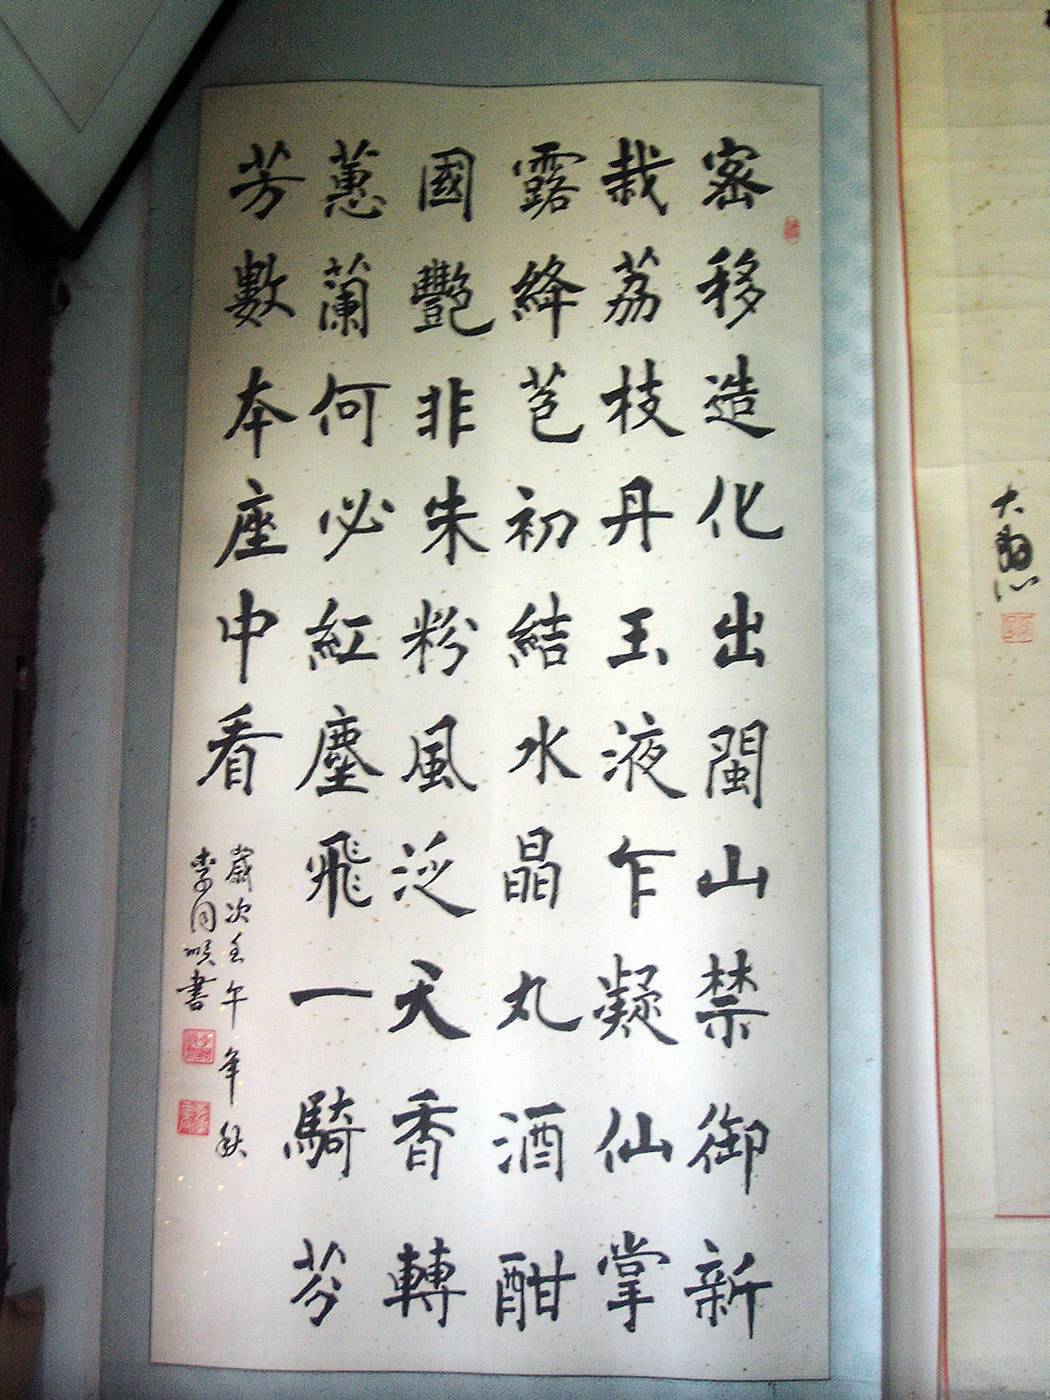 密移造化出閩山禁御新
栽荔枝丹玉液乍凝仙掌
露絳苞初結水晶丸酒酣
國艷非朱粉風泛天香轉
蕙蘭何必紅塵飛一騎芬
芳數本座中看
歲次壬午年秋
李同順書